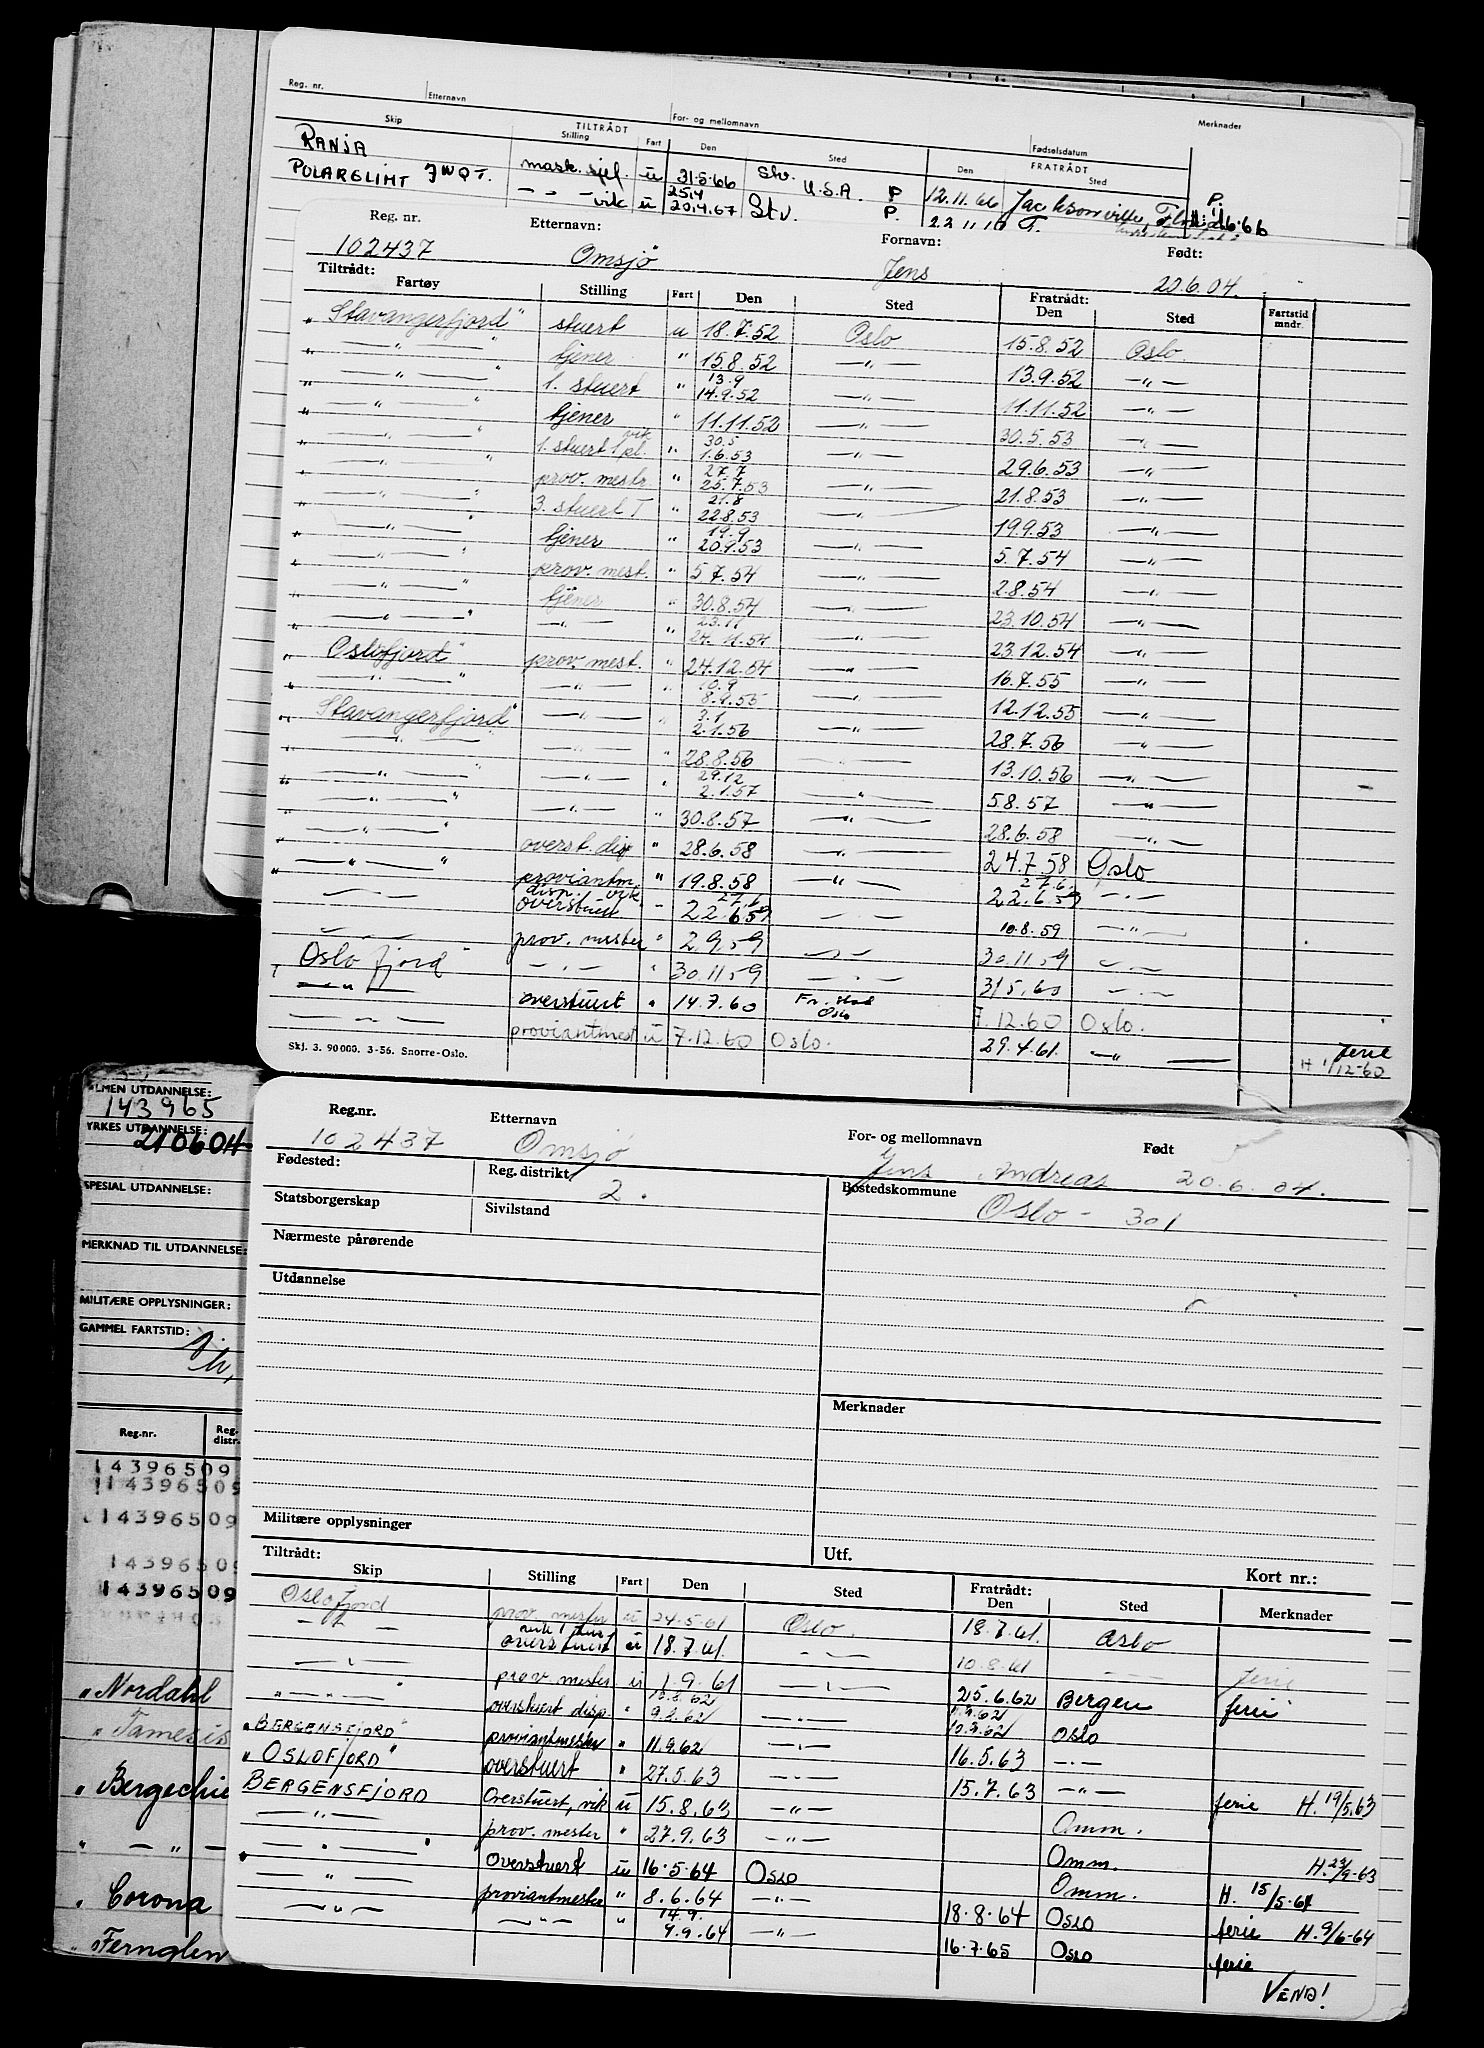 Reg. nr. Etternavn For- og mellomnavn Fødselsdatum Merknader
Skip TILTRÅDT Stilling Fart Den Sted FRATRÅDT Den Sted
RANJA mask. sjef. u 31.5.66 Slv. U.S.A. P 12.11.66 Jacksonville, P.
POLARGLIMT JWQT. — - — vik u 25/4 20.4.67 Stv. P. T.
Reg. nr. Etternavn: Fornavn: Født:
102437 Omsjö Jens 20.6.04.
Tiltrådt: Fratrådt:
Fartøy Stilling Fart Den Sted Den Sted Fartstid mndr.
"Stavangerfjord" stuert u 18.7.52 Oslo 15.8.52 Oslo
" — " — " tjener " 15.8.52 — " — 13.9.52 — " —
" — " — " 1. stuert " 13.9 14.9.52 — " — 11.11.52 — " —
" — " — " tjener " 11.11.52 — " — 30.5.53 — " —
" — " — " 1. stuert 1 pl. vik " 30.5 1.6.53 — " — 29.6.53 — " —
" — " — " prov. mestr " 27.7 25.7.53 — " — 21.8.53 — " —
" — " — " 3. stuert T " 21.8 22.8.53 — " — 19.9.53 — " —
" — " — " tjener " 19.9 20.9.53 — " — 5.7.54 — " —
" — " — " prov. mest. " 5.7.54 — " — 2.8.54 — " —
" — " — " tjener " 30.8.54 — " — 23.10.54 — " —
" — " — " — " — " 23.11 24.11.54 — " — 23.12.54 — " —
" Oslofjord " prov. mest. " 24.12.54 — " — 16.7.55 — " —
" — " — " — " — " 10.9 8.9.55 — " — 12.12.55 — " —
" Stavangerfjord" — " — " 3.1 2.1.56 — " — 28.7.56 — " —
" — " — " — " — " 28.8.56 13.10.56 — " —
" — " — " — " — " 29.12 2.1.57 — " — 5.8.57 — " —
" — " — " — " — " 30.8.57 — " — 28.6.58 — " —
" — " — " overst. disp " 28.6.58 — " — 24.7.58 Oslo
" — " — " proviantm " 19.8.58 — " — 27.6. 22.6.59 — " —
— " — disp. vik overstuert " 27.6 22.6.59 — " — 10.8.59 — " —
— " — prov. mester " 2.9.59 — " — 30.11.59 — " —
Oslofjord — " — " 30.11.59 — " — 31.5.60 — " —
— " — overstuert " 14.7.60 Oslo 7.12.60 Oslo.
— " — proviantmest u 7.12.60 Oslo. 29.4.61. — " — ferie H 1/12-60
Skj. 3. 90 000. 3-56. Snorre-Oslo.
ALMEN UTDANNELSE:
143965
YRKES UTDANNELSE:
210604
SPESIAL UTDANNELSE:
MERKNAD TIL UTDANNELSE:
MILITÆRE OPPLYSNINGER:
GAMMEL FARTSTID:
Reg.nr. Reg. distr.
14396509
14396509
14396509
14396509
14396509
" Nordahl
" Tamesis
" Bergechie
" — " —
" Corona
" Fernglen
Reg.nr. Etternavn For- og mellomnavn Født
102437 Omsjö Jens Andreas 20.6.04.
Fødested: Reg. distrikt 2. Bostedskommune Oslo - 301
Statsborgerskap Sivilstand
Nærmeste pårørende
Utdannelse
Merknader
Militære opplysninger Utf.
Tiltrådt: Fratrådt: Kort nr.:
Skip Stilling Fart Den Sted Den Sted Merknader
Oslofjord prov. mester u 24.5.61 Oslo. 18.7.61. Oslo
— " — overstuert u 18.7.61. — " — 10.8.61 — " — ferie
— " — prov. mester u 1.9.61 — " — 25.6.62 Bergen ferie
" — " — " overstuert disp. " 13.8.62 9.8.62 — " — 10.9.62 Oslo
" BERGENSFJORD" proviantmester " 11.9.62 — " — 16.5.63 — " —
" OSLOFJORD " overstuert " 27.5.63 — " — 15.7.63 — " — ferie H. 19/5.63
BERGENSFJORD Overstuert, vik u 15.8.63 — " — Omm.
— " — prov. mester " 27.9.63 — " — Omm. H. 23/9-63
" — " — " Overstuert u 16.5.64 Oslo Omm. H. 15/5-64
— " — proviantmester " 8.6.64 — " — 18.8.64 Oslo ferie H. 9/6-64
— " — — " — " 14.9. 9.9.64 — " — 16.7.65 Oslo ferie
VEND!